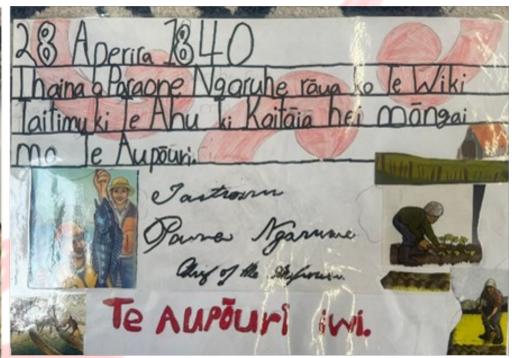 28 Aperira 1840
Ihaina a Paraone Ngaruhe rāua ko Te Wiki
Taitimu ki Te Ahu ki Kaitāia hei māngai
mo Te Aupōuri.
Ngaruhe
Chief of the
Te Aupōuri iwi.